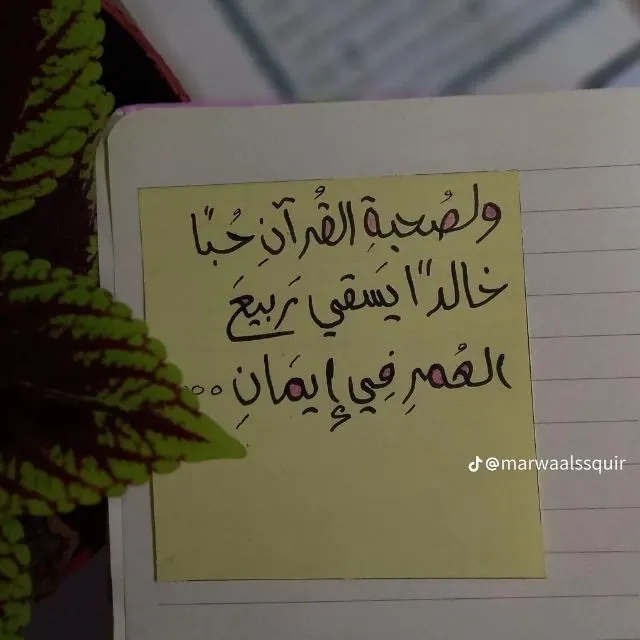 ولصُحبةِ القُرآنِ حُبًا
خالدًا يَسقي رَبيعَ
العُمرِ فِي إيمَانِ..
@marwaalssquir